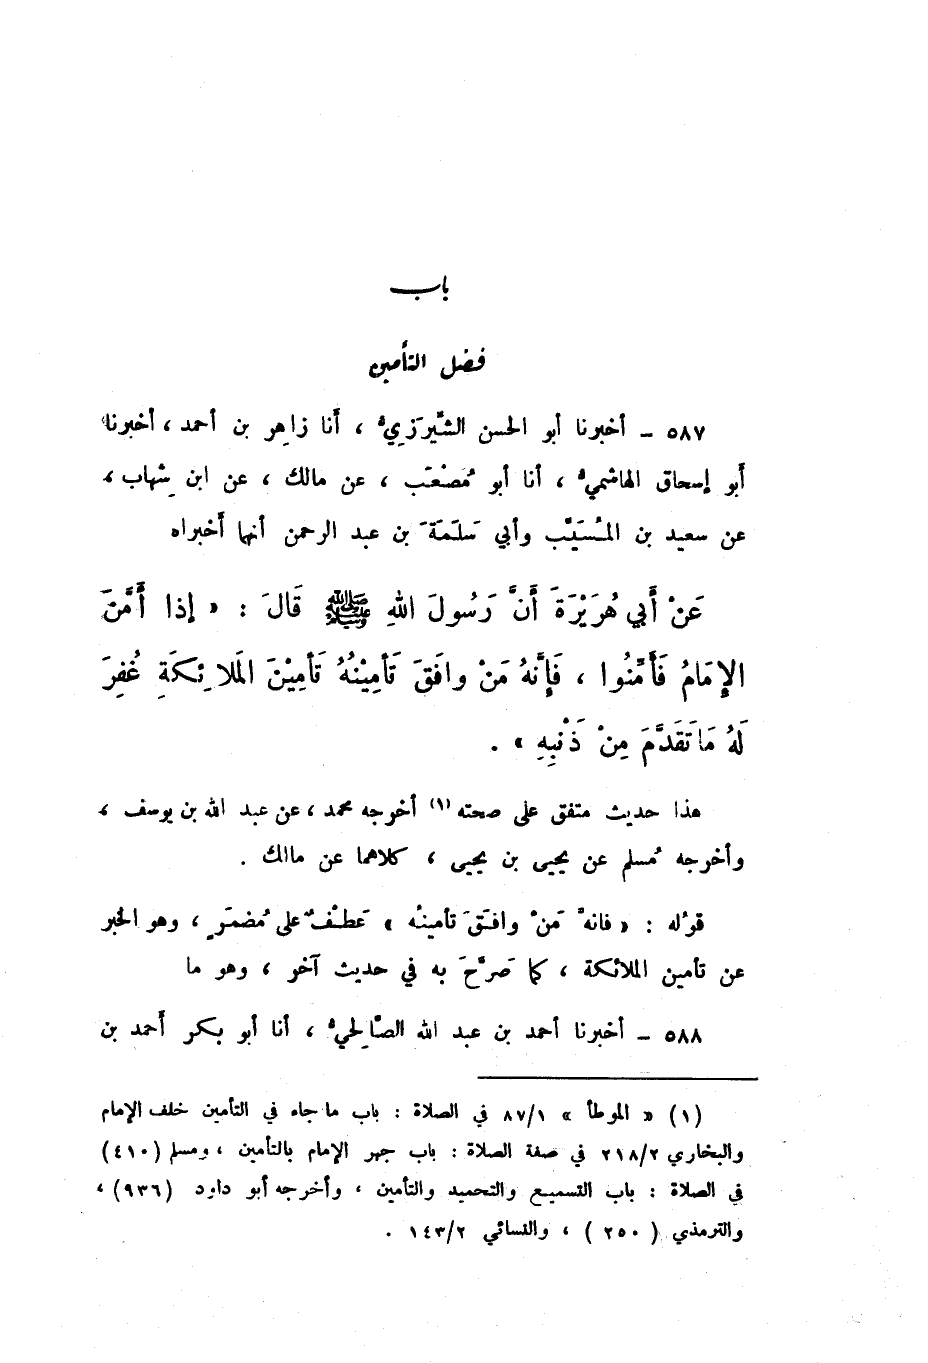 باب
فضل التأمين
٥٨٧ – أخبرنا أبو الحسن الشَّيرَزِيُّ ، أَنا زاهِر بن أحمد ، أخبرنا
أَبو إسحاق الهاشميُّ ، أنا أبو مُصْعَب ، عن مالك ، عن ابن شِهاب ،
عن سعيد بن المُسَيَّب وأبي سَلَمَةَ بن عبد الرحمن أنهما أَخبراه
عَنْ أَبي هُرَيْرَةَ أَنَّ رَسُولَ اللهِ ﷺ قَالَ : « إذا أَمَّنَ
الإِمَامُ فَأَمِّنُوا ، فَإِنَّهُ مَنْ وافَقَ تَأمِيْنُهُ تَأمِيْنَ المَلائِكَةِ غُفِرَ
لَهُ مَا تَقَدَّمَ مِنْ ذَنْبِهِ » .
هذا حديث متفق على صحته (١) أخرجه محمد ، عن عبد الله بن يوسف ،
وأخرجه مُسلم عن يحيى بن يحيى ، كلاهما عن مالك .
قوله : « فانهُ مَنْ وافَقَ تأمينُه » عَطفٌ على مُضمَرٍ ، وهو الخبر
عن تأمين الملائكة ، كما صَرَّحَ به في حديث آخر ، وهو ما
٥٨٨ – أخبرنا أحمد بن عبد الله الصَّالحِيُّ ، أنا أبو بكر أَحمد بن
(١) « الموطأ » ٨٧/١ في الصلاة : باب ما جاء في التأمين خلف الإمام
والبخاري ٢١٨/٢ في صفة الصلاة : باب جهر الإمام بالتأمين ، ومسلم (٤١٠)
في الصلاة : باب التسميع والتحميد والتأمين ، وأخرجه أبو داود (٩٣٦) ،
والترمذي ( ٢٥٠ ) ، والنسائي ١٤٣/٢ .